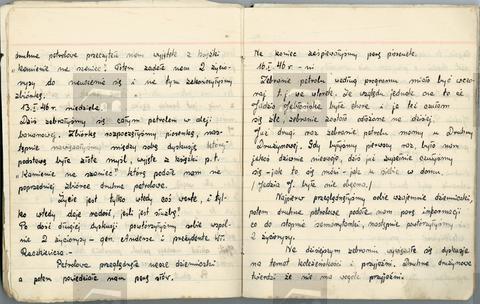 druhna patrolowa przeczyta nam wyjątek z książki
"Kamienie na szaniec". Potem zadała nam 2 życio-
rysy do nauczenia się i na tym zakończyłyśmy
zbiórkę.
13.I.46 r. niedziela
Dziś zebrałyśmy się całym patrolem w dej:
Zbiórkę rozpoczęłyśmy piosenką, nas-
tępnie nawiązałyśmy między sobą dyskusję której
podstawą była złota myśl, wyjęta z książki p.t.
"Kamienie na szaniec" którą podała nam na
poprzedniej zbiórce druhna patrolowa.
Życie jest tylko wtedy coś warte, i tyl-
ko wtedy daje radość, jeśli jest służbą!
Po dość długiej dyskusji powtórzyłyśmy sobie wspól-
nie 2 życiorysy - gen. Andersa i prezydenta Wł.
Raczkiewicza. -
Patrolowa przeglądnęła nasze dzienniczki
a potem powiedziała nam parę słów.
Na koniec zaśpiewałyśmy parę piosenek.
16.I.46 r. - ni
Zebranie patrolu według programu miało być wczo-
raj t.j. we wtorek. Ze względu jednak na to że
Jadzia była chora i ja też czułam
się źle, zebranie zostało odłożone na dzisiaj.
Już drugi raz zebranie patrolu mamy u Druhny
Drużynowej. Gdy byłyśmy pierwszy raz, było nam
jakoś dziwnie nieswojo, dziś już zupełnie czujemy
się - jak to się mówi - jak u siebie w domu.
/Jadzia J. była nie obecna/
Najpierw przeglądnęłyśmy sobie wzajemnie dzienniczki,
potem druhna patrolowa podała nam parę informacji
co do stopnia samarytanki, następnie powtórzyłyśmy
2 życiorysy.
Na dzisiejszym zebraniu wywiązała się dyskusja
na temat koleżeństwa i przyjaźni. Druhna drużynowa
twierdzi że nie ma wogóle przyjaźni